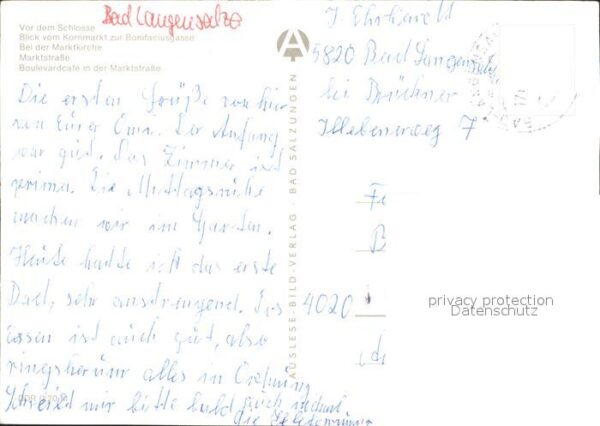 Bad Langensalza
Vor dem Schlosse
Blick vom Kornmarkt zur Bonifaciusgasse
Bei der Marktkirche
Marktstraße
Boulevardcafé in der Marktstraße
Die ersten Grüße von hier
von Eurer Omi. Der Anfang
war gut. Das Zimmer ist
prima. Die Mittagsruhe
machen wir im Garten.
Heute hatte ich das erste
Bad, sehr anstrengend. Das
Essen ist auch gut, also
ringsherum alles in Ordnung
Schreibt mir bitte bald auch
die
AUSLESE-BILD-VERLAG · BAD SALZUNGEN
J. Ehrhardt
5820 Bad Langensalza
bei Brückner
Illebenerweg 7
Fe
B
4020
privacy protection
Datenschutz